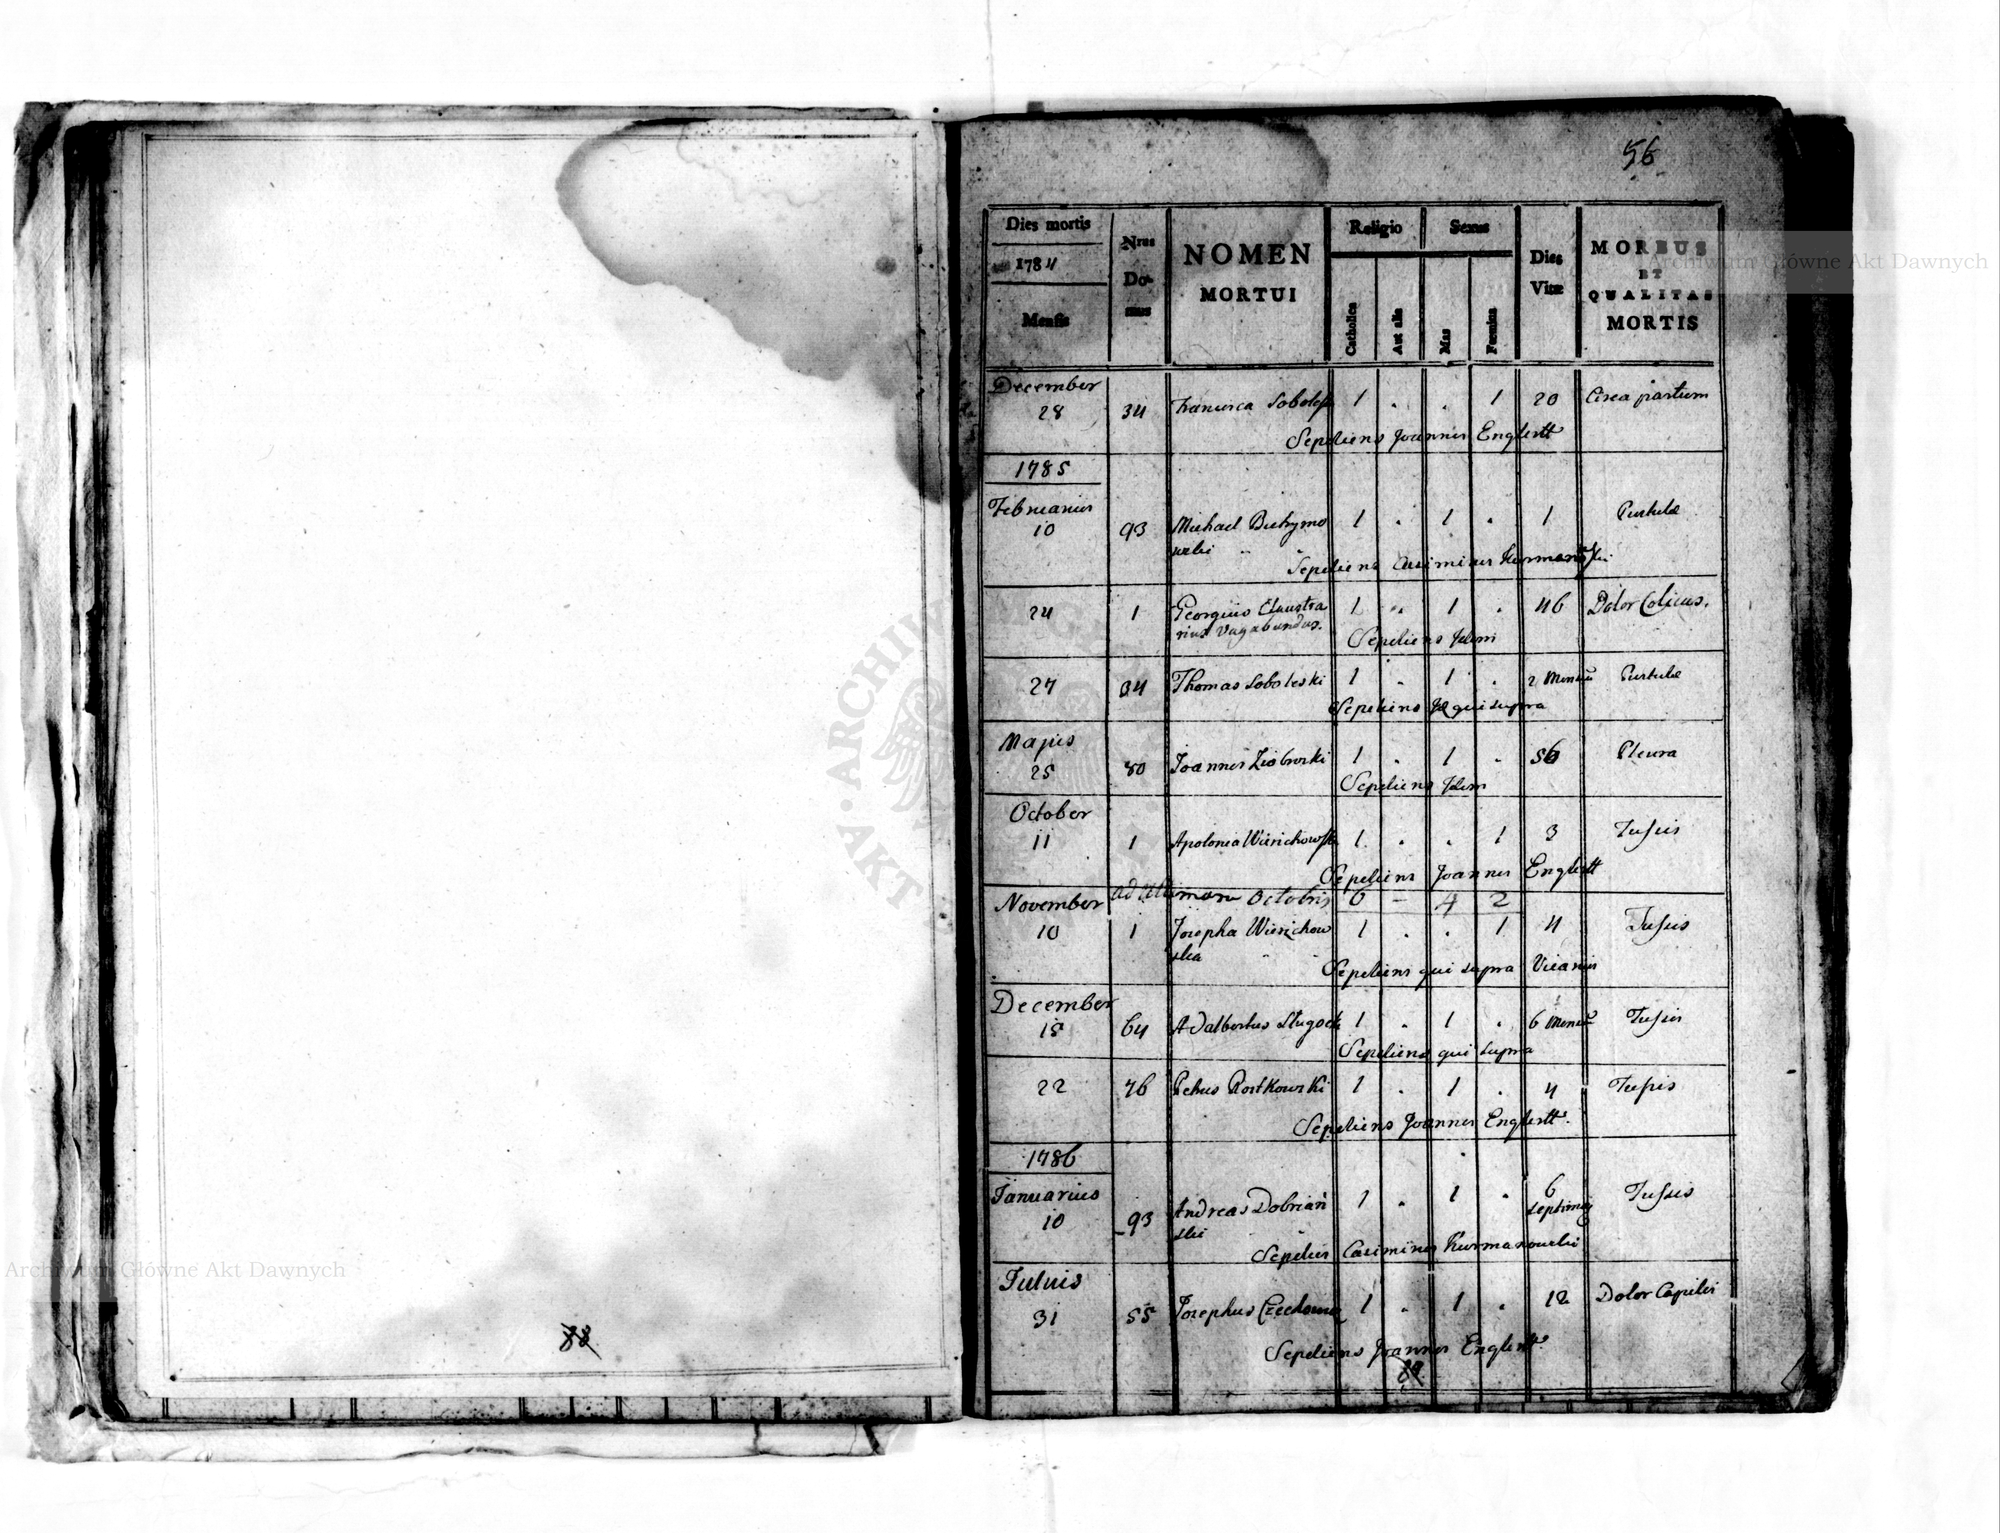 56
Dies mortis
1784
Mensis
Nrus
Do-
mus
NOMEN
MORTUI
Religio
Catholica
Aut alia
Sexus
Mas
Foemina
Dies
Vitæ
MORBUS
ET
QUALITAS
MORTIS
December
28 34 Francisca 1 . . 1 20 Circa partum
Sepeliens Joannes Englertt
1785
Februarius
10 93 Michael 1 . 1 . 1 Pustulæ
Sepeliens Casimirus
24 1 Georgius Claustra 1 . 1 . 46 Dolor Colicus.
rius Vagabundus.
Sepeliens Idem
27 34 Thomas Soboleski 1 . 1 . 2 Pustulæ
Sepeliens qui supra
Majus
25 80 Joannes 1 . 1 . 56 Pleura
Sepeliens Idem
October
11 1 Apolonia 1 . . 1 3 Tussis
Sepeliens Joannes Englertt
ad ultimam Octobris 6 - 4 2
November
10 1 Josepha Wierzchow 1 . . 1 4 Tussis
ska
Sepeliens qui supra Vicarius
December
15 64 Adalbertus 1 . 1 . 6 Tussis
Sepeliens qui supra
22 76 Petrus Rostkowski 1 . 1 . 4 Tussis
Sepeliens Joannes Englertt
1786
Januarius
10 93 Andreas Dobriań 1 . 1 . 6 Tussis
ski
Casimirus Kurmanowski
Julius
31 55 Josephus 1 . 1 . 12 Dolor Capitis
Sepeliens Joannes Englertt
88
Archiwum Główne Akt Dawnych
Archiwum Główne Akt Dawnych